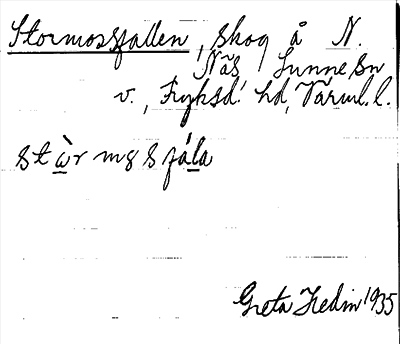 Stormossfallen, skog å N.
Näs Sunne sn
v., Fryksd. hd, Värml. l.
stὼrmɞsfála
Greta Hedin 1935